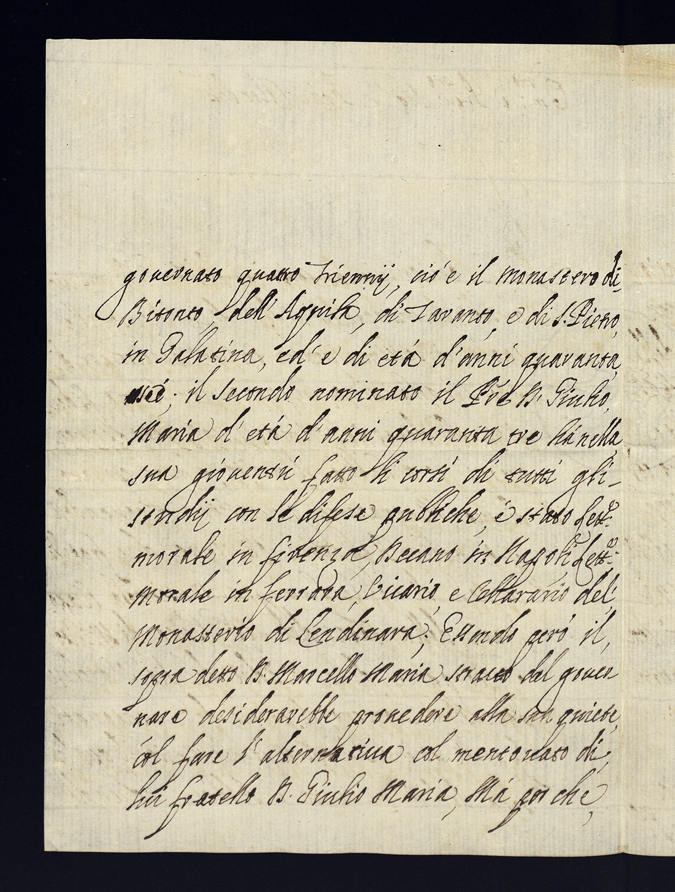 governato quatro Triennij, ció e il Monastero di
Bitonto, dell'Aquila, di Taranto, e di S. Pietro,
in Galatina, ed' e di etá d'anni quaranta
sei; il secondo nominato il Pre D. Giulio,
Maria d'etá d'anni quaranta tre há nella
sua gioventú fatto li corsi di tutti gli
studij con le difese publiche, é stato Letto.
morale in firenza, Decano in Napoli Letto.
Morale in ferrara, Vicario, e Cellarario del,
Monasterio di Lendinara; Essendo peró il,
sopra detto D. Marcello Maria straco del gover
nare desiderarebbe provedere alla sua quiete,
col fare l'alternativa col mentovato di,
lui fratello D. Giulio Maria, Má per che,